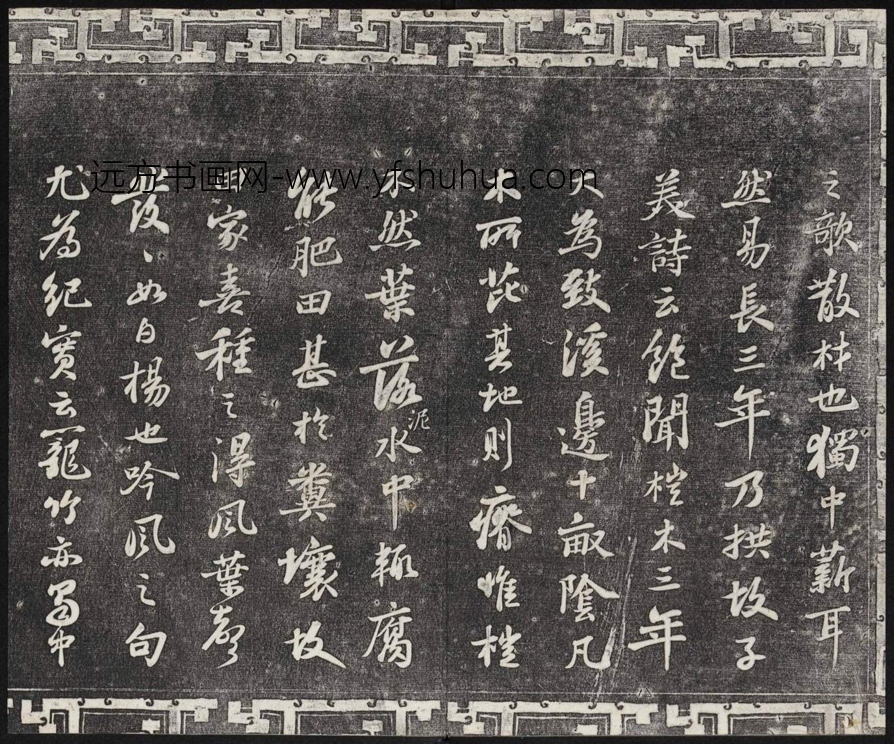 之歌散材也獨中薪耳
然易長三年乃拱故子
美詩云飽聞榿木三年
大為致溪邊十畝陰凡
木所芘其地則瘠惟榿
不然葉落泥水中輒腐
能肥田甚於糞壤故
田家喜種之得風葉聲
發〻如白楊也吟風之句
尤為紀實云籠竹亦蜀中
远方书画网-www.yfshuhua.com